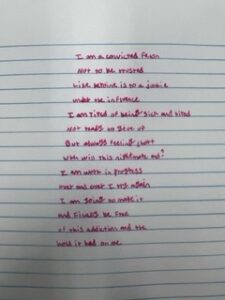 I am a convicted felon
Not to be trusted
Like heroine is to a junkie
under the influence
I am tired of being sick and tired
Not ready to give up
But always feeling short
When will this nightmare end?
I am work in progress
over and over I try again
I am going to make it
and Finally be Free
of this addiction and the
hold it had on me